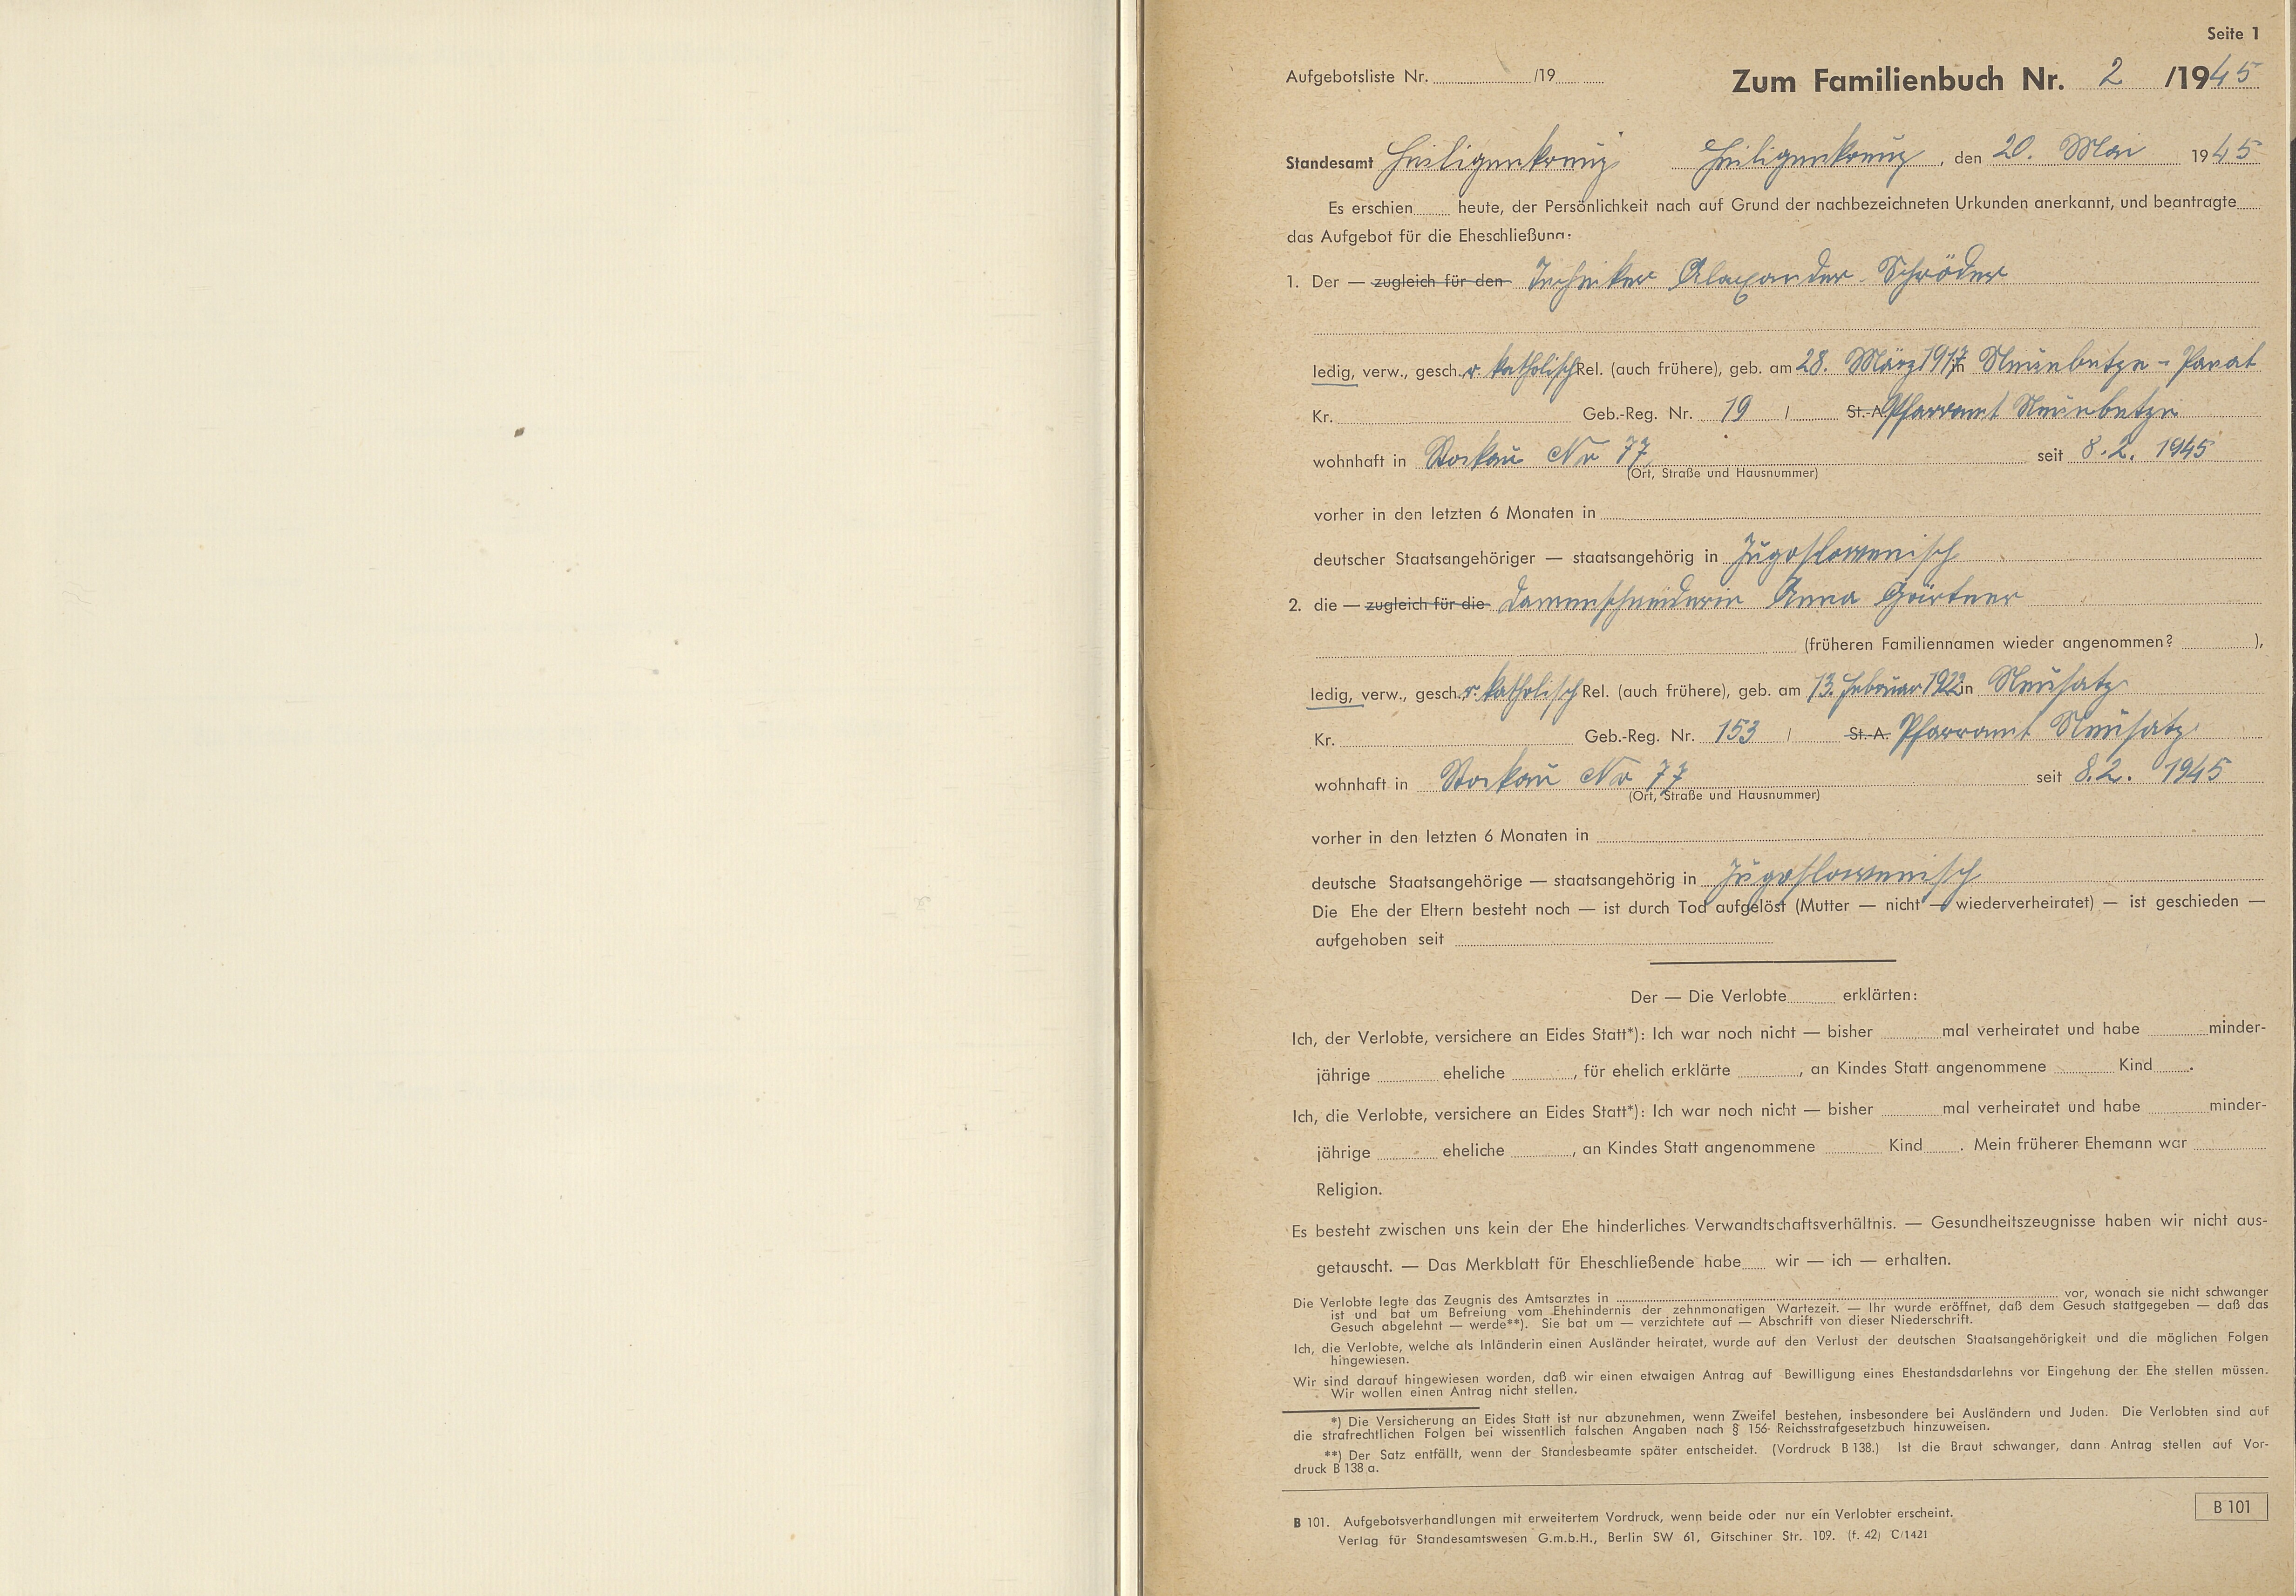 Seite 1
Aufgebotsliste Nr. /19
Zum Familienbuch Nr. 2 /1945
Standesamt Heiligenkreuz Heiligenkreuz, den 20. Mai 1945
Es erschien heute, der Persönlichkeit nach auf Grund der nachbezeichneten Urkunden anerkannt, und beantragte
das Aufgebot für die Eheschließung:
1. Der — zugleich für den Techniker Alexander Schröder
ledig, verw., gesch. r. katholisch Rel. (auch frühere), geb. am 28. März 1917 in
Kr. Geb.-Reg. Nr. 19 / St.-A. Pfarramt
wohnhaft in Stockau No 77 seit 8.2. 1945
(Ort, Straße und Hausnummer)
vorher in den letzten 6 Monaten in
deutscher Staatsangehöriger — staatsangehörig in Jugoslowenisch
2. die — zugleich für die Damenschneiderin Anna Gärtner
(früheren Familiennamen wieder angenommen? ),
ledig, verw., gesch. r. katholisch Rel. (auch frühere), geb. am 13. Februar 1922 in Neusatz
Kr. Geb.-Reg. Nr. 153 / St.-A. Pfarramt Neusatz
wohnhaft in Stockau No 77 seit 8.2. 1945
(Ort, Straße und Hausnummer)
vorher in den letzten 6 Monaten in
deutsche Staatsangehörige — staatsangehörig in Jugoslowenisch
Die Ehe der Eltern besteht noch — ist durch Tod aufgelöst (Mutter — nicht — wiederverheiratet) — ist geschieden —
aufgehoben seit
Der — Die Verlobte erklärten:
Ich, der Verlobte, versichere an Eides Statt*): Ich war noch nicht — bisher mal verheiratet und habe minder-
jährige eheliche , für ehelich erklärte , an Kindes Statt angenommene Kind .
Ich, die Verlobte, versichere an Eides Statt*): Ich war noch nicht — bisher mal verheiratet und habe minder-
jährige eheliche , an Kindes Statt angenommene Kind . Mein früherer Ehemann war
Religion.
Es besteht zwischen uns kein der Ehe hinderliches Verwandtschaftsverhältnis. — Gesundheitszeugnisse haben wir nicht aus-
getauscht. — Das Merkblatt für Eheschließende habe wir — ich — erhalten.
Die Verlobte legte das Zeugnis des Amtsarztes in vor, wonach sie nicht schwanger
ist und bat um Befreiung vom Ehehindernis der zehnmonatigen Wartezeit. — Ihr wurde eröffnet, daß dem Gesuch stattgegeben — daß das
Gesuch abgelehnt — werde**). Sie bat um — verzichtete auf — Abschrift von dieser Niederschrift.
Ich, die Verlobte, welche als Inländerin einen Ausländer heiratet, wurde auf den Verlust der deutschen Staatsangehörigkeit und die möglichen Folgen
hingewiesen.
Wir sind darauf hingewiesen worden, daß wir einen etwaigen Antrag auf Bewilligung eines Ehestandsdarlehns vor Eingehung der Ehe stellen müssen.
Wir wollen einen Antrag nicht stellen.
*) Die Versicherung an Eides Statt ist nur abzunehmen, wenn Zweifel bestehen, insbesondere bei Ausländern und Juden. Die Verlobten sind auf
die strafrechtlichen Folgen bei wissentlich falschen Angaben nach § 156 Reichsstrafgesetzbuch hinzuweisen.
**) Der Satz entfällt, wenn der Standesbeamte später entscheidet. (Vordruck B 138.) Ist die Braut schwanger, dann Antrag stellen auf Vor-
druck B 138 a.
B 101. Aufgebotsverhandlungen mit erweitertem Vordruck, wenn beide oder nur ein Verlobter erscheint.
Verlag für Standesamtswesen G.m.b.H., Berlin SW 61, Gitschiner Str. 109. (f. 42) C/1421
B 101